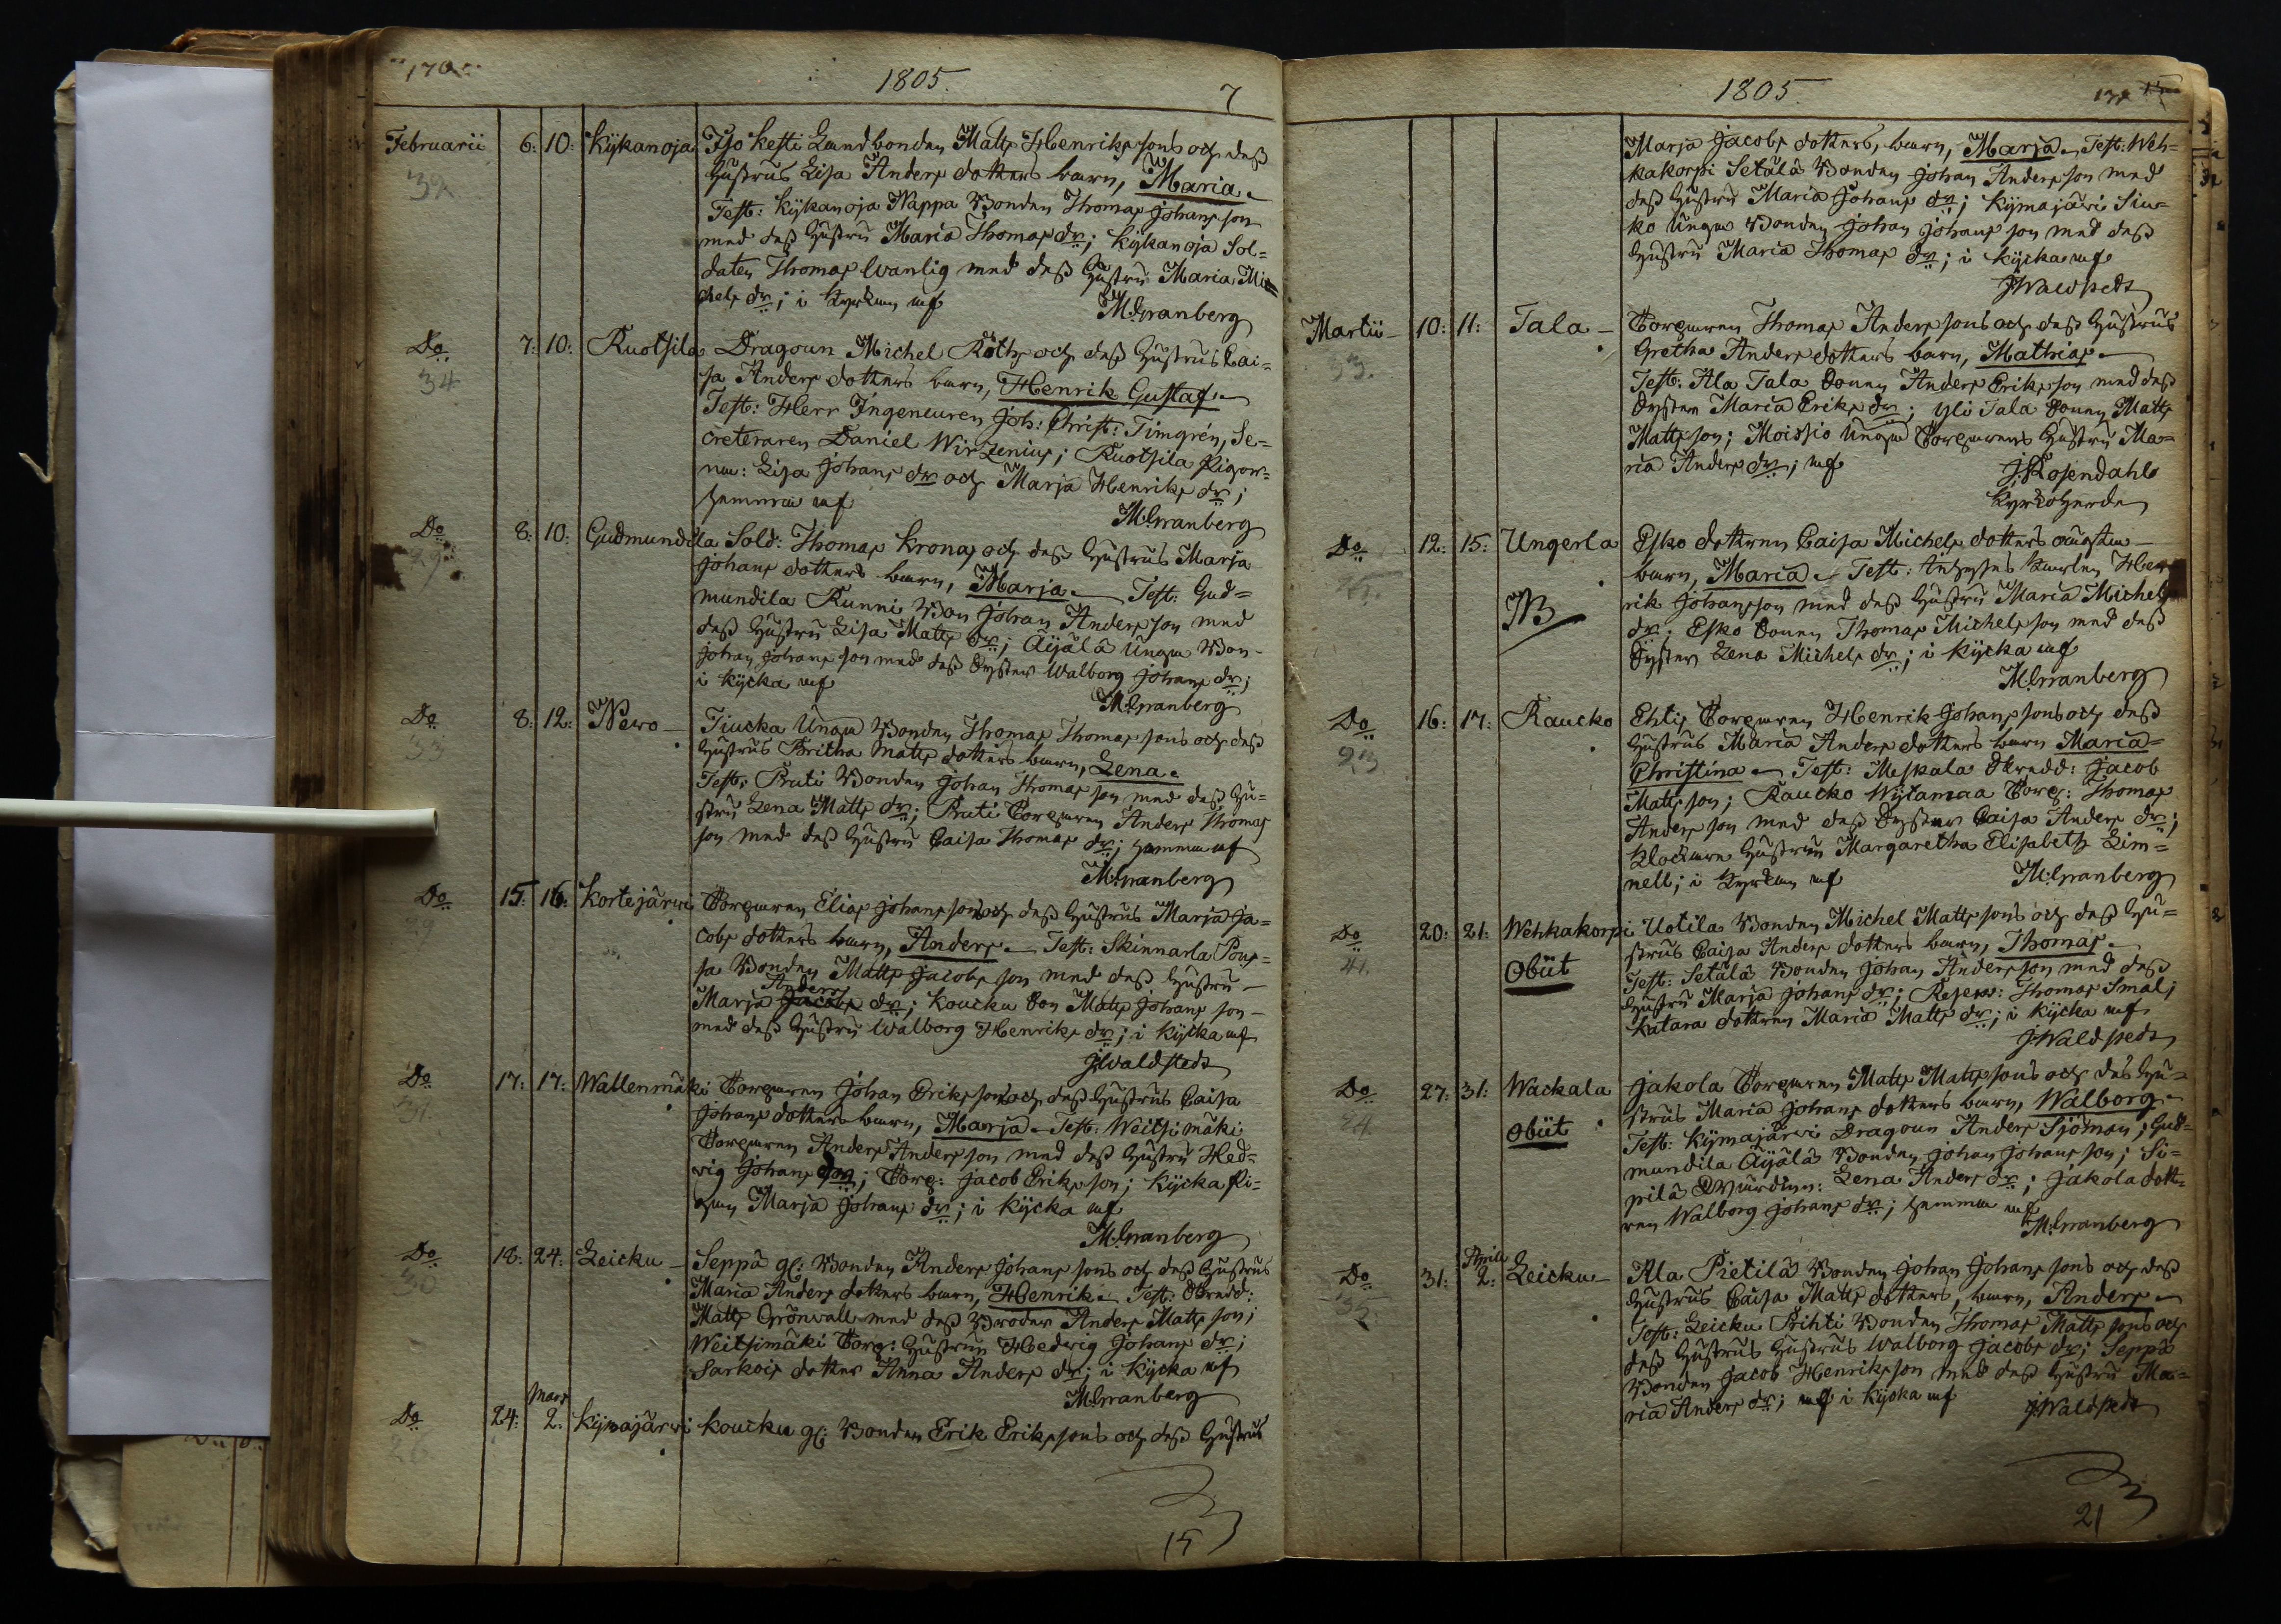 170
1805.
7
Februarii 6: 10: Kykänoja Iso Kesti Landbonden Matts Henrikssons och dess
32
Hustrus Lisa Anders dotters barn, Maria.
Test: Kykänoja Nappa Bonden Thomas Johans son
med dess Hustru Maria Thomas dr; Kykänoja Sol=
daten Thomas Wanlig med dess Hustru Maria Mi=
chels dr; i Kyrkan af
M: Granberg
Do 7: 10: Ruotsila Dragoun Michel Röths och dess Hustrus Cai=
34
sa Anders dotters barn, Henrik Gustaf.
Test: Herr Ingenieuren Joh: Christ: Timgrén, Se=
creteraren Daniel Wirzenius; Ruotsila Pigor=
na: Lisa Johans dr och Marja Henriks dr;
hemma af
M: Granberg
Do 8: 10: Gudmundila Sold: Thomas Kronas och dess Hustrus Marja
29
Johans dotters barn, Marja. Test: Gud=
mundila Runni Bon Johan Anders son med
dess Hustru Lisa Matts dr; Äijälä Unga Bon
Johan Johans son med dess Syster Walborg Johans dr;
i Kyrka af
M: Granberg
Do 8: 12: Nero Tiucka Unga Bonden Thomas Thomas sons och dess
33
Hustrus Britha Matts dotters barn, Lena.
Test: Prati Bonden Johan Thomas son med dess Hu=
stru Lena Matts dr; Prati Torparen Anders Thomas
son med dess Hustru Caisa Thomas dr; hemma af
M: Granberg
Do 15: 16: Kortejärwi Torparen Elias Johans sons och dess Hustrus Marja Ja=
29
cobs dotters barn, Anders. Test: Skinnarla Pous=
sa Bonden Matts Jacobs son med dess Hustru
Anders
Marja Jacobs dr; Koucku Son Matts Johans son
med dess Hustru Walborg Henriks dr; i Kyrka af
J: Waldstedt
Do 17: 17: Wallenmäki Torparen Johan Eriks sons och dess Hustrus Caisa
31.
Johans dotters barn, Marja. Test: Weitsimäki
Torparen Anders Anders son med dess Hustru Hed=
vig Johans dr; Torp: Jacob Eriks son; Kycka Pi=
gan Marja Johans dr; i Kyrka af
M: Granberg
Do 18: 24: Leicku Seppä gl: Bonden Anders Johans sons och dess Hustrus
30
Maria Anders dotters barn, Henrik. Test: Skredd:
Matts Grönvall med dess Broder Anders Matts son;
Weitsimäki Torp: Hustrun Hedvig Johans dr;
Sarkois dotter Anna Anders dr; i Kyrka af
M: Granberg
Mars
Do 24: 2: Kymäjärwi Koucku gl: Bonden Erik Eriks sons och dess Hustrus
15
1805.
15
Marja Jacobs dotters, barn, Marja. Test: Weh=
kakorpi Setälä Bonden Johan Anders son med
dess Hustru Maria Johans dr; Kymäjärwi Siu=
ko Unga Bonden Johan Johans son med dess
Hustru Maria Thomas dr; i Kyrka af
J: Waldstedt
Martii 10: 11: Tala Torparen Thomas Anders sons och dess Hustrus
33.
Gretha Anders dotters barn, Mathias.
Test: Ala Tala Sonen Anders Eriks son med dess
Syster Maria Eriks dr; Yli Tala Sonen Matts
Matts son; Moissio Unga Torparens Hustru Ma=
ria Anders dr; af
J: Rosendahl
Kyrkoherde
Do 12: 15: Ungerla Esko dottren Caisa Michels dotters oäkta
NB
barn, Maria. Test: Karlen Hen
rik Johansson med dess Hustru Maria Michels
dr; Esko Sonen Thomas Michels son med dess
Syster Lena Michels dr; i Kyrka af
M: Granberg
Do 16: 17: Raucko Ehtis Torparen Henrik Johans sons och dess
23
Hustrus Maria Anders dotters barn Maria=
Christina. Test: Meskala Skredd: Jacob
Matts son; Raucko Wytamaa Torp: Thomas
Anders son med dess Syster Caisa Anders dr;
Klockare Hustrun Margaretha Elisabeth Lim=
nell; i Kyrkan af
M: Granberg
Do 20: 21: Wehkakorpi Uotila Bonden Michel Matts sons och dess Hu=
41.
Obiit
strus Caisa Anders dotters barn, Thomas.
Test: Setälä Bonden Johan Anders son med dess
Hustru Marja Johans dr; Reserv: Thomas Smal;
Katara dottren Maria Matts dr; i Kyrka af
J: Waldstedt
Do 27: 31: Wackala Jakola Torparen Matts Matts sons och dess Hu=
24
Obiit
strus Maria Johans dotters barn, Walborg.
Test: Kymäjärwi Dragoun Anders Sjöman; Gud=
mundila Äijälä Bonden Johan Johans son; Si=
pilä Lena Anders dr; Jakola dott=
ren Walborg Johans dr; hemma af
M: Granberg
Aprill
Do 31: 2: Leicku Ala Pietilä Bonden Johan Johans sons och dess
32
Hustrus Caisa Matts dotters, barn, Anders.
Test: Leicku Prihti Bonden Thomas Matts sons och
dess Hustrus Hustrus Walborg Jacobs dr; Seppä
Bonden Jacob Henriks son med dess Hustru Ma=
ria Anders dr; af i Kyrka af
J: Waldstedt
21